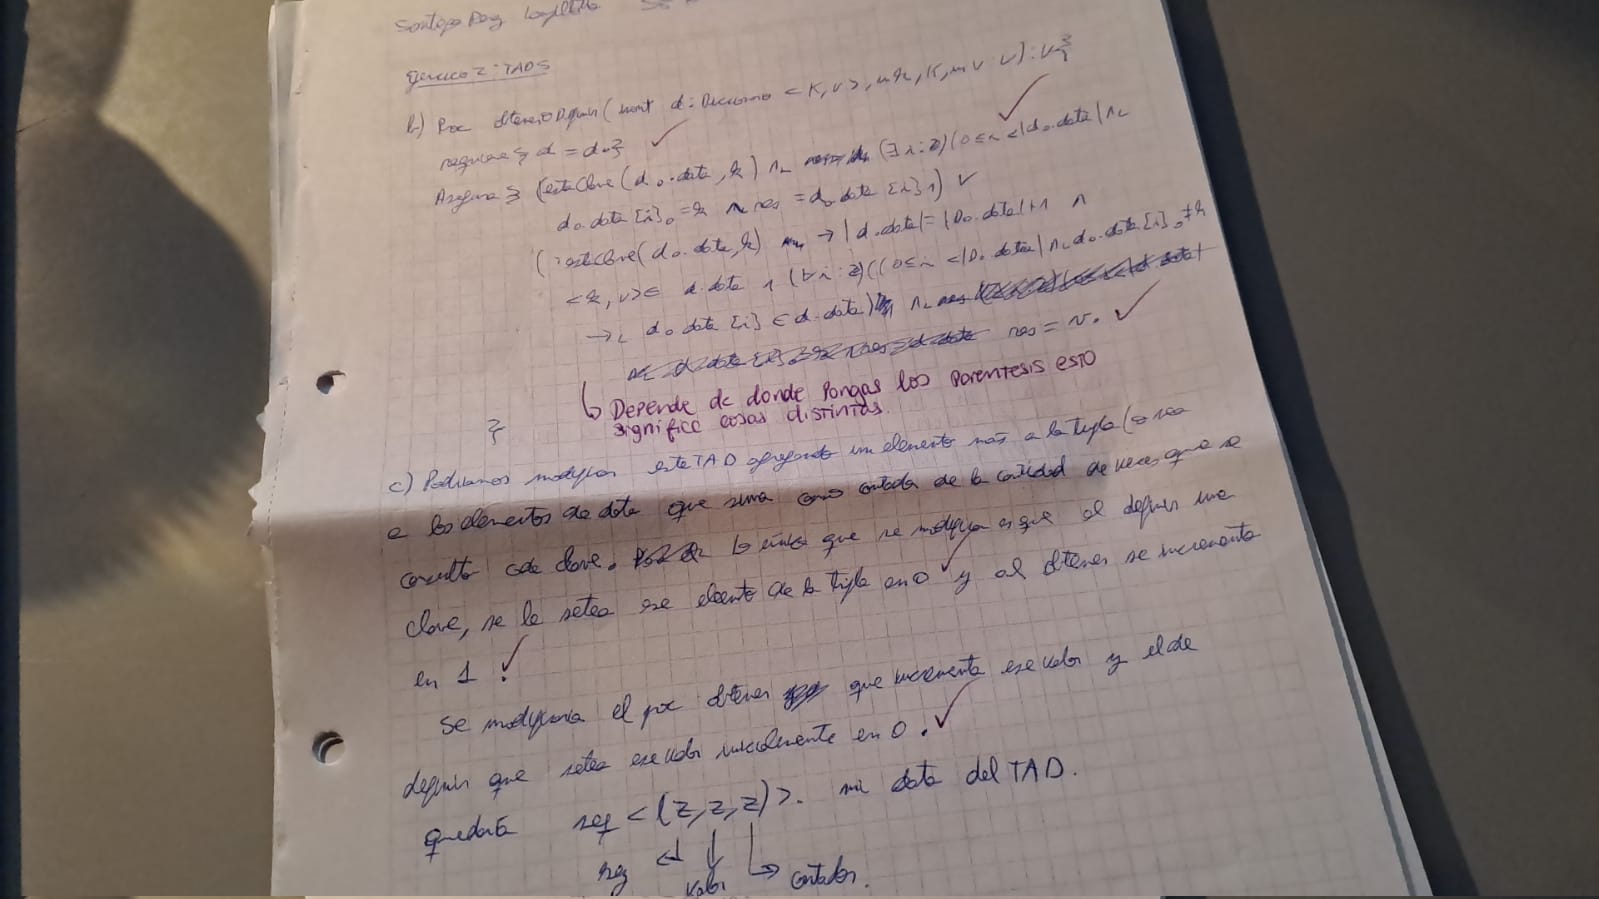 Ejercicio 2: TADS
b) Proc obtenerODefinir (inout d: Diccionario <K, V>, in k: K, in v: V): V {
requiere { d = d₀ }
Asegura { (estaClave(d₀.data, k) ∧L (∃ i: Z)(0 ≤ i < |d₀.data| ∧L
d₀.data [i]₀ = k ∧L res = d₀.data [i]₁) ∨
(¬estaClave(d₀.data, k) → |d.data| = |D₀.data| + 1 ∧
<k, v> ∈ d.data ∧ (∀ i: Z)((0 ≤ i < |D₀.data| ∧L d₀.data [i]₀ ≠ k
→L d₀.data [i] ∈ d.data) ∧L res = v.
↳ Depende de donde pongas los parentesis esto
significa cosas distintas.
}
c) Podriamos modificar este TAD agregando un elemento más a la tupla (o sea
a los elementos de data que sirva como contador de la cantidad de veces que se
consulto cada clave. lo único que se modifica es que al definir una
clave, se le setea ese elemento de la tupla en 0 y al obtener se incrementa
en 1.
Se modificaria el proc obtener que incrementa ese valor y el de
definir que setea ese valor inicialmente en 0.
quedaria seq <(Z, Z, Z)>. mi data del TAD.
key valor contador.